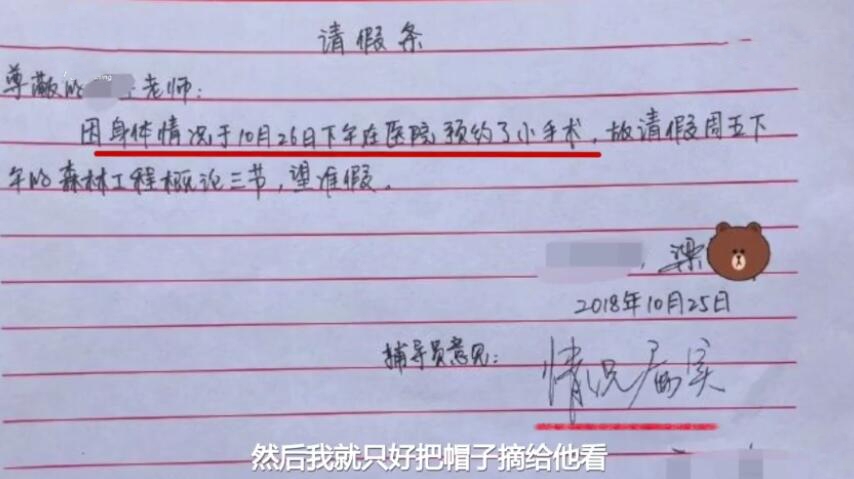 请假条
尊敬的 老师:
因身体情况于10月26日下午在医院预约了小手术,故请假周五下
午的森林工程概论三节,望准假。
梁
2018年10月25日
辅导员意见:
情况属实
然后我就只好把帽子摘给他看